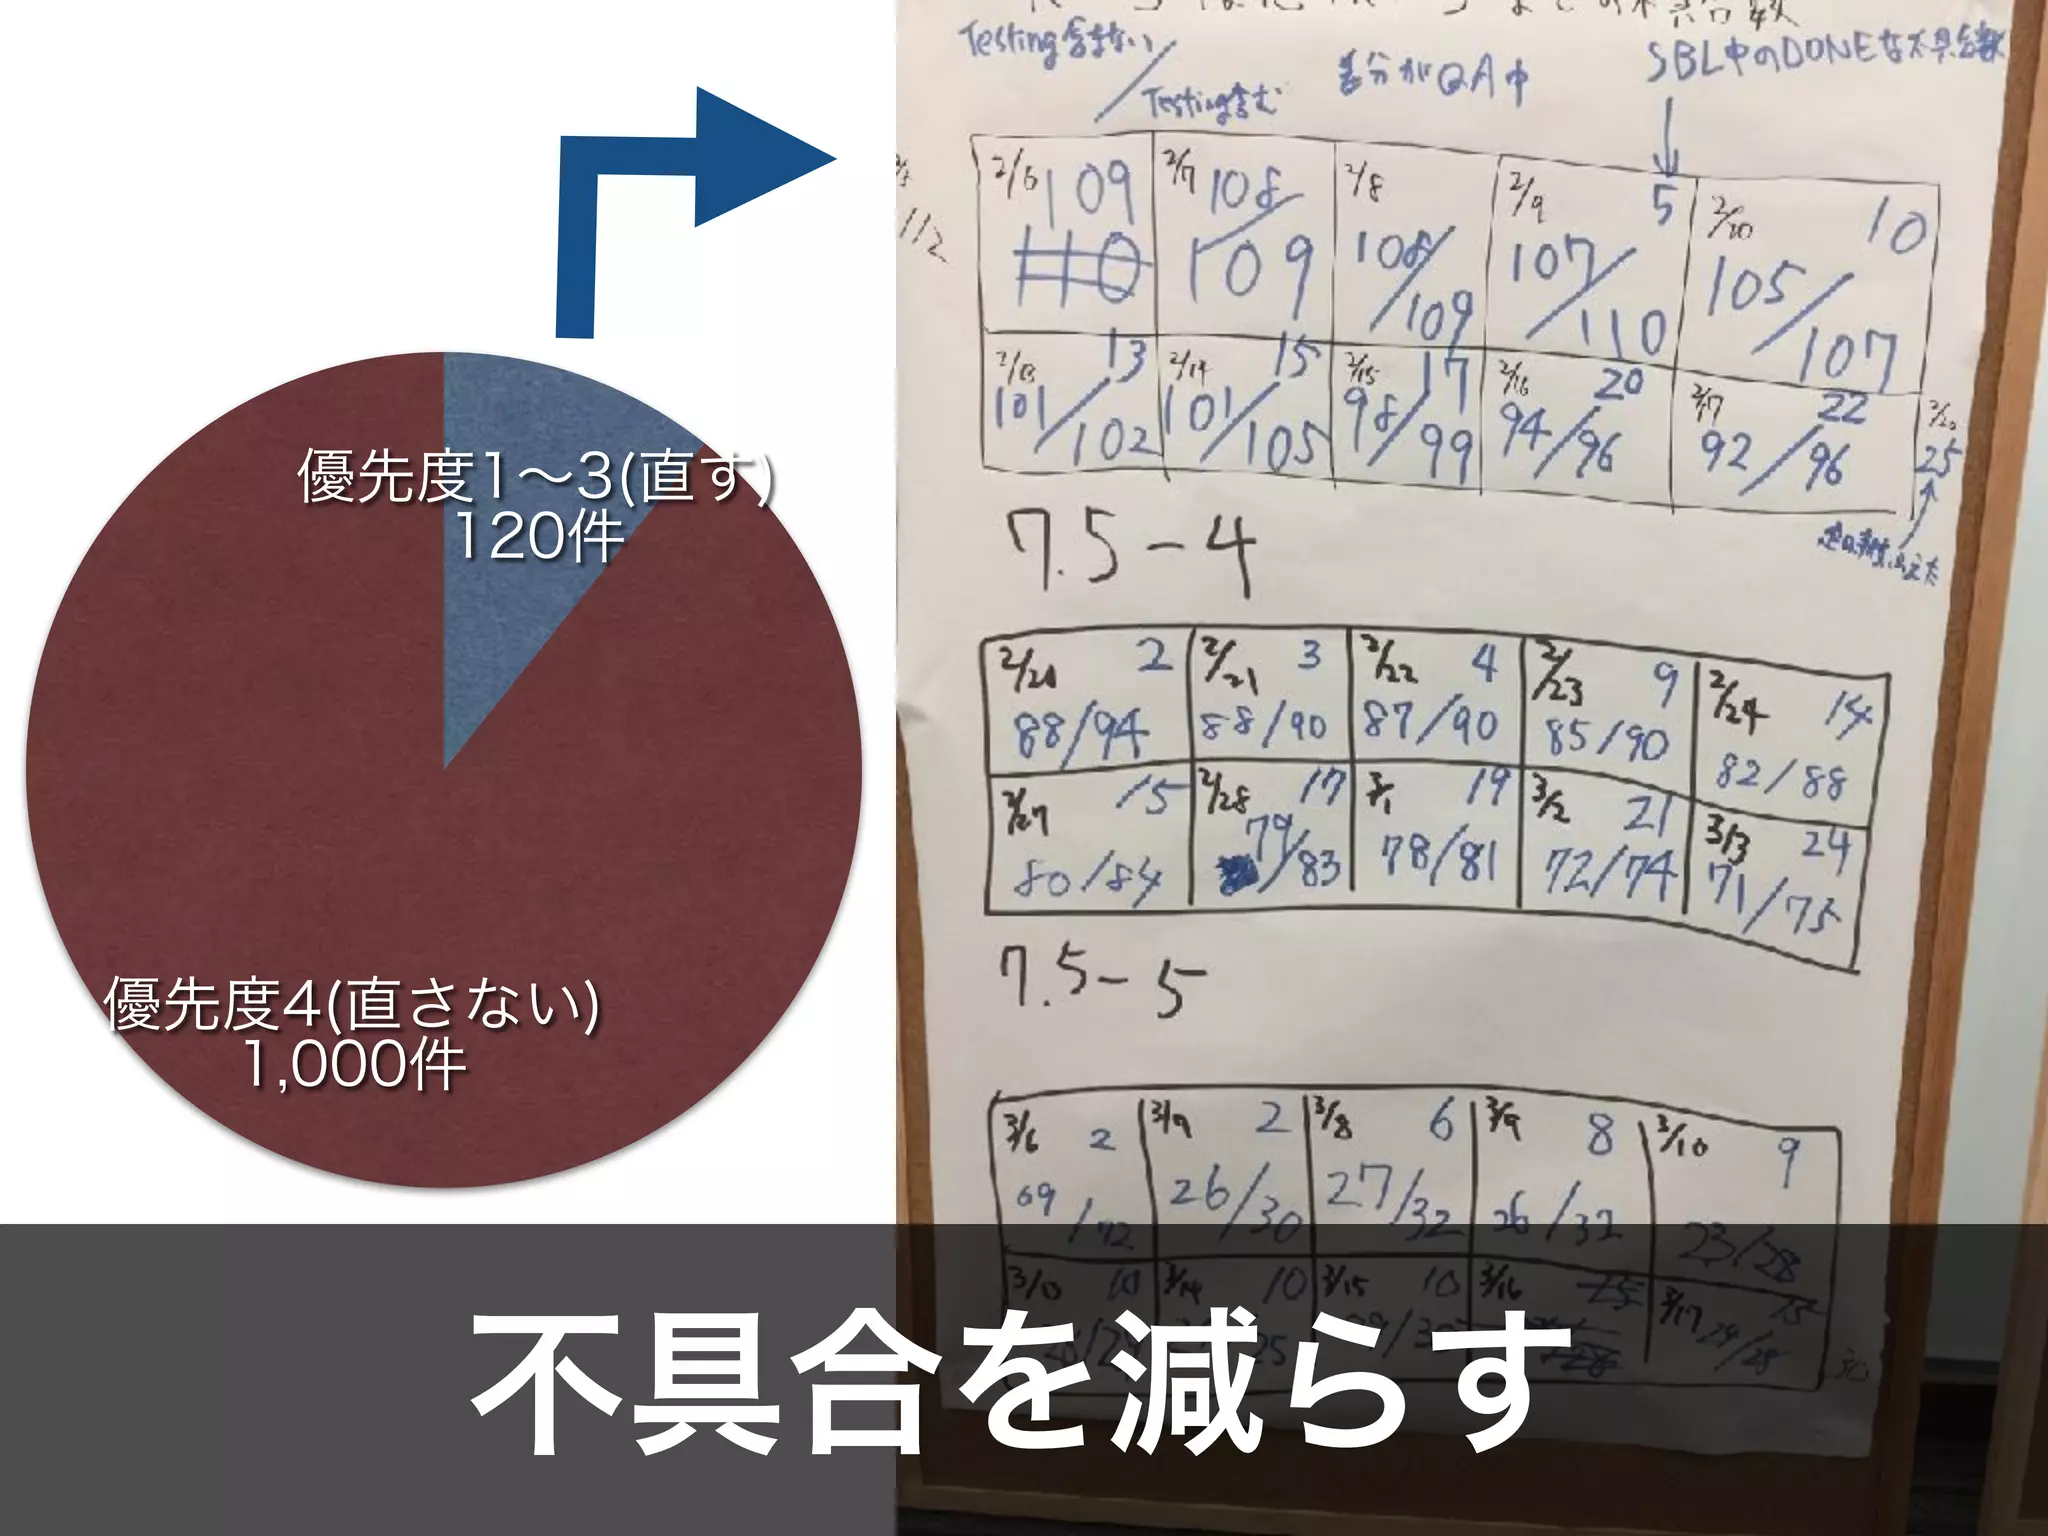 優先度1〜3(直す)
120件
優先度4(直さない)
1,000件
Testing含まない
Testing含む
差分がQA中
SBL中のDONEな不具合数
112
2/6 109
110
2/7 108/109
2/8 108/109
2/9 5 107/110
2/10 10 105/107
2/13 13 101/102
2/14 15 101/105
2/15 17 98/99
2/16 20 94/96
2/17 22 92/96
2/20 25
7.5-4
2/20 2 88/94
2/21 3 88/90
2/22 4 87/90
2/23 9 85/90
2/24 14 82/88
2/27 15 80/84
2/28 17 79/83
3/1 19 78/81
3/2 21 72/74
3/3 24 71/75
7.5-5
3/6 2 69/72
3/9 2 26/30
3/8 6 27/32
3/9 8 26/32
3/10 9 23/28
3/13 10
3/14 10
3/15 10
3/16 25
3/17 15 24/28
30
不具合を減らす